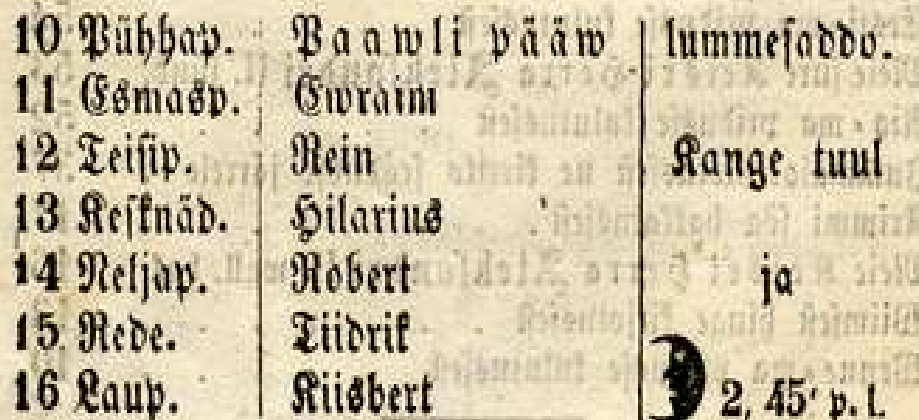 10 Pühhap. Paawli pääw lummesaddo.
11 Esmasp. Ewraim
12 Teisip. Rein Kange tuul
13 Kesknäd. Hilarius
14 Neljap. Robert ja
15 Rede. Tiidrik
16 Laup. Kiisbert 2, 45' p. l.